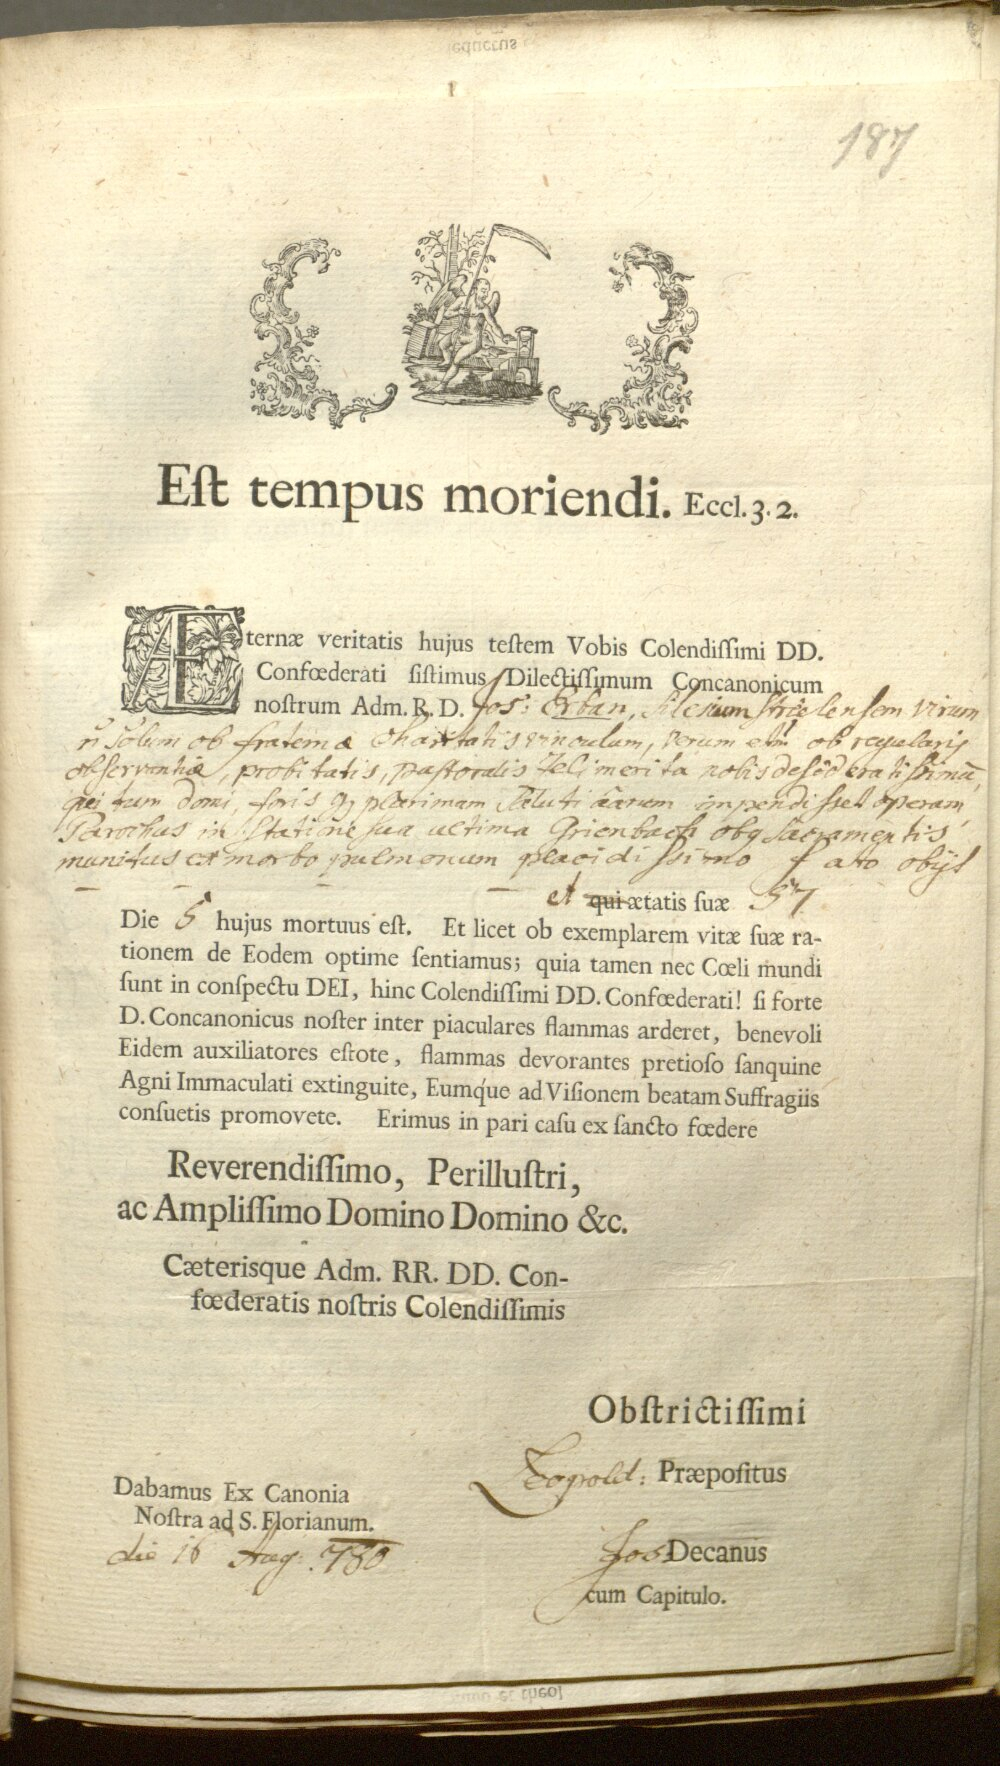 187
Eſt tempus moriendi. Eccl. 3. 2.
Æternæ veritatis hujus teſtem Vobis Colendiſſimi DD.
Confœderati ſiſtimus Dilectiſſimum Concanonicum
noſtrum Adm. R. D. Jos: Orban, Silesium Strielensem virum
n̄ solum ob fraternæ Charitatis vinculum, verum etm̄ ob regularis
observantiæ, probitatis, pastoralis zeli merita nobis desideratissimū,
qui tum domi, foris pplurimam saluti ãarum impendisset operam,
Parochus in statione sua ultima Grienbach obq sacramentis
munitus ex morbo pulmonum placidissimo fato obijt
et qui ætatis ſuæ 57
Die 5 hujus mortuus eſt. Et licet ob exemplarem vitæ ſuæ ra-
tionem de Eodem optime ſentiamus; quia tamen nec Cœli mundi
ſunt in conſpectu DEI, hinc Colendiſſimi DD. Confœderati! ſi forte
D. Concanonicus noſter inter piaculares flammas arderet, benevoli
Eidem auxiliatores eſtote, flammas devorantes pretioſo ſanquine
Agni Immaculati extinguite, Eumque ad Viſionem beatam Suffragiis
conſuetis promovete. Erimus in pari caſu ex ſancto fœdere
Reverendiſſimo, Perilluſtri,
ac Ampliſſimo Domino Domino &c.
Cæterisque Adm. RR. DD. Con-
fœderatis noſtris Colendiſſimis
Obſtrictiſſimi
Leopold: Præpoſitus
Dabamus Ex Canonia
Noſtra ad S. Florianum.
die 16 Aug: 780
Jos: Decanus
cum Capitulo.